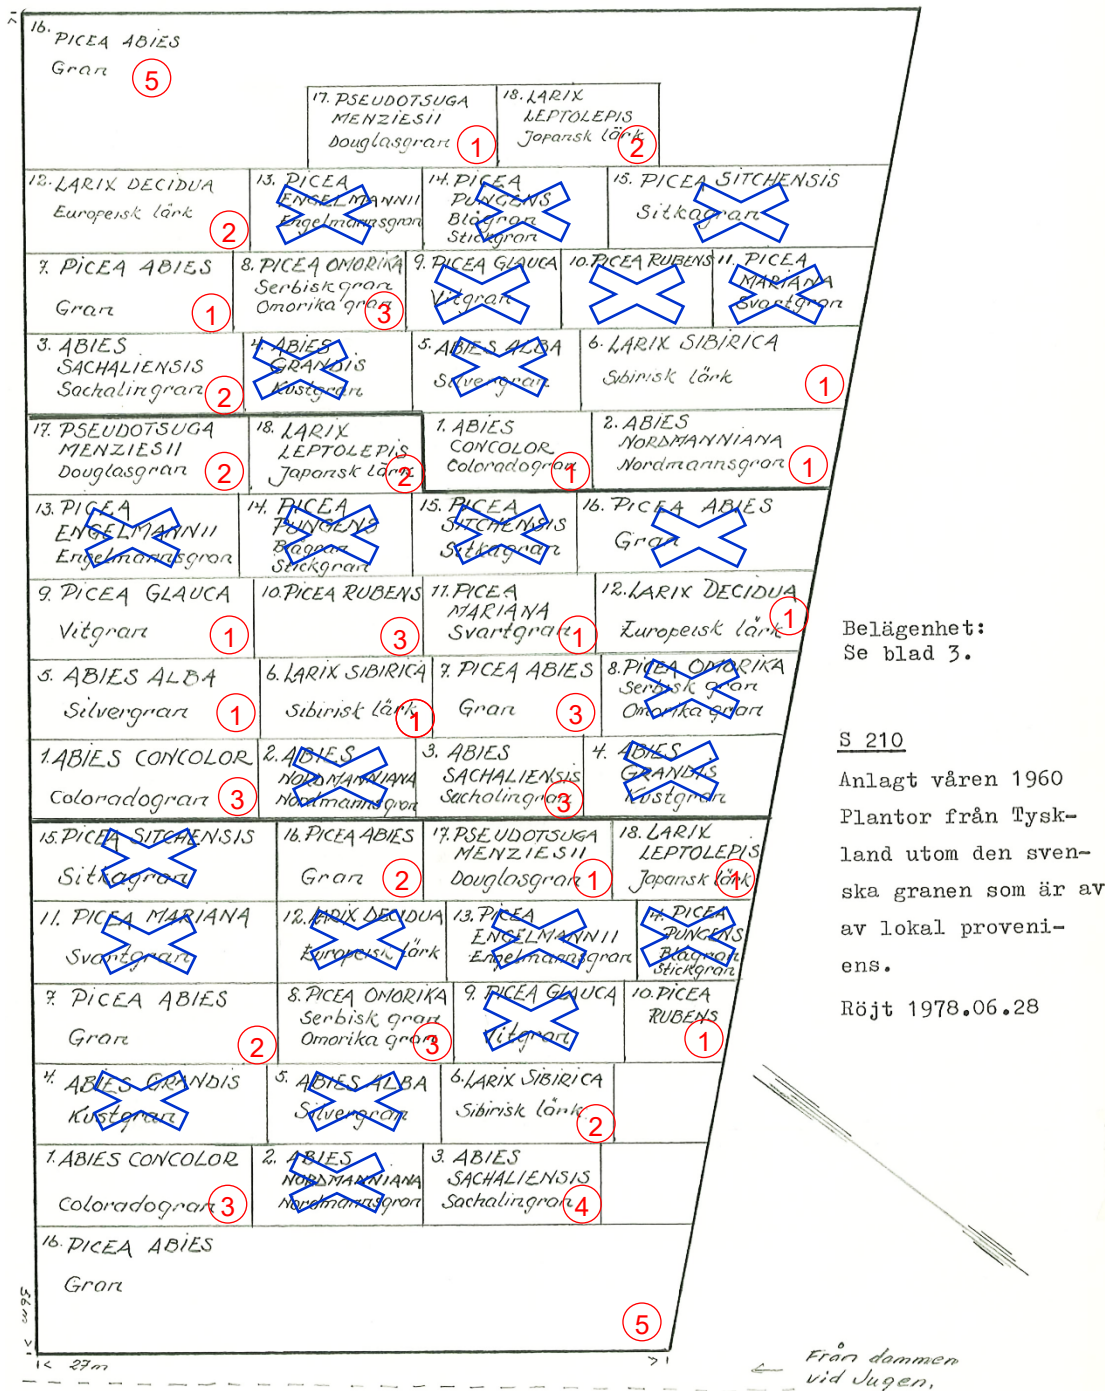 16.
PICEA ABIES
Gran
5
17. PSEUDOTSUGA
MENZIESII
Douglasgran
1
18. LARIX
LEPTOLEPIS
Japansk lärk
2
12. LARIX DECIDUA
Europeisk lärk
2
13. PICEA
ENGELMANNII
Engelmannsgran
14. PICEA
PUNGENS
Blågran
Stickgran
15. PICEA SITCHENSIS
Sitkagran
7. PICEA ABIES
Gran
1
8. PICEA OMORIKA
Serbisk gran
Omorika gran
3
9. PICEA GLAUCA
Vitgran
10. PICEA RUBENS
11. PICEA
MARIANA
Svartgran
3. ABIES
SACHALIENSIS
Sachalingran
2
4. ABIES
GRANDIS
Kustgran
5. ABIES ALBA
Silvergran
6. LARIX SIBIRICA
Sibirisk lärk
1
17. PSEUDOTSUGA
MENZIESII
Douglasgran
2
18. LARIX
LEPTOLEPIS
Japansk lärk
2
1. ABIES
CONCOLOR
Coloradogran
1
2. ABIES
NORDMANNIANA
Nordmannsgran
1
13. PICEA
ENGELMANNII
Engelmannsgran
14. PICEA
PUNGENS
Blågran
Stickgran
15. PICEA
SITCHENSIS
Sitkagran
16. PICEA ABIES
Gran
9. PICEA GLAUCA
Vitgran
1
10. PICEA RUBENS
3
11. PICEA
MARIANA
Svartgran
1
12. LARIX DECIDUA
Europeisk lärk
1
5. ABIES ALBA
Silvergran
1
6. LARIX SIBIRICA
Sibirisk lärk
1
7. PICEA ABIES
Gran
3
8. PICEA OMORIKA
Serbisk gran
Omorika gran
1. ABIES CONCOLOR
Coloradogran
3
2. ABIES
NORDMANNIANA
Nordmannsgran
3. ABIES
SACHALIENSIS
Sachalingran
3
4. ABIES
GRANDIS
Kustgran
15. PICEA SITCHENSIS
Sitkagran
16. PICEA ABIES
Gran
2
17. PSEUDOTSUGA
MENZIESII
Douglasgran
1
18. LARIX
LEPTOLEPIS
Japansk lärk
1
11. PICEA MARIANA
Svartgran
12. LARIX DECIDUA
Europeisk lärk
13. PICEA
ENGELMANNII
Engelmannsgran
14. PICEA
PUNGENS
Blågran
Stickgran
7. PICEA ABIES
Gran
2
8. PICEA OMORIKA
Serbisk gran
Omorika gran
3
9. PICEA GLAUCA
Vitgran
10. PICEA
RUBENS
1
4. ABIES GRANDIS
Kustgran
5. ABIES ALBA
Silvergran
6. LARIX SIBIRICA
Sibirisk lärk
2
1. ABIES CONCOLOR
Coloradogran
3
2. ABIES
NORDMANNIANA
Nordmannsgran
3. ABIES
SACHALIENSIS
Sachalingran
4
16. PICEA ABIES
Gran
5
56m
27m
Belägenhet:
Se blad 3.
S 210
Anlagt våren 1960
Plantor från Tysk-
land utom den sven-
ska granen som är av
av lokal proveni-
ens.
Röjt 1978.06.28
Från dammen
vid Jugen.